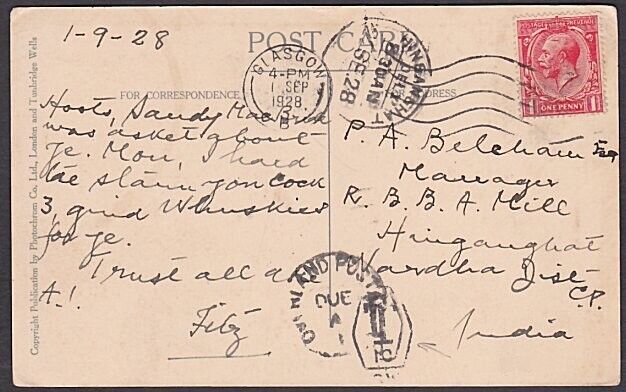 1-9-28
POST CARD
FOR CORRESPONDENCE
ADDRESS
GLASGOW
4-PM
1 SEP
1928
B
HINGANGHAT
SE 28
POSTAGE REVENUE
ONE PENNY
1
1
Hoots, Sandy
was asket about
Ye. Mon, I haed
tae stann yon cock
3, guid Whuskies
for ye.
Trust all
A.1.
Fitz
P. A. Belcham Esq
Manager
R. B. B. A. Mill
Hinganghat
Wardha Dist
C.P.
India
INLAND POSTAGE
DUE
Copyright Publication by Photochrom Co. Ltd., London and Tunbridge Wells